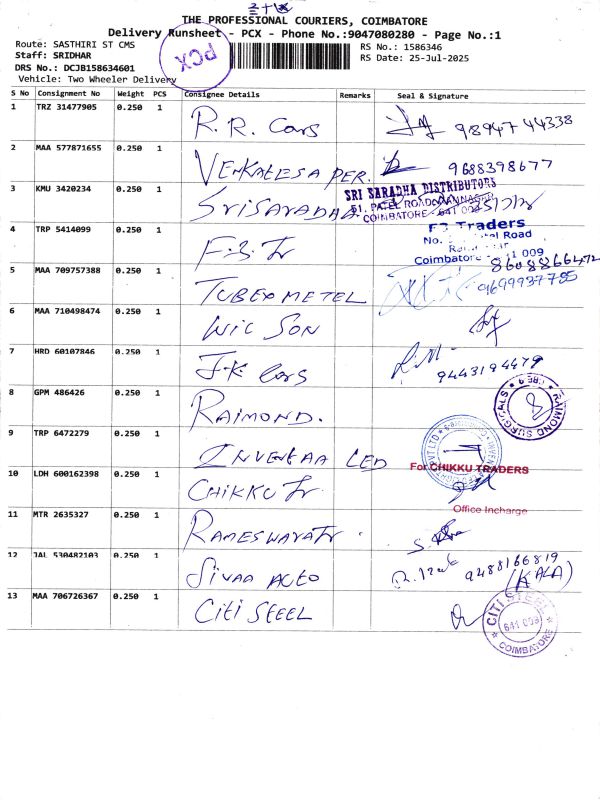 THE PROFESSIONAL COURIERS, COIMBATORE
Delivery Runsheet - PCX - Phone No.:9047080280 - Page No.:1
Route: SASTHIRI ST CMS
Staff: SRIDHAR
DRS No.: DCJB158634601
Vehicle: Two Wheeler Delivery
PCX
RS No.: 1586346
RS Date: 25-Jul-2025
S No Consignment No Weight PCS Consignee Details Remarks Seal & Signature
1 TRZ 31477905 0.250 1 R.R. Cars 98947 44338
2 MAA 577871655 0.250 1 VENKATESA PER. 9688398677
3 KMU 3420234 0.250 1 SRISARADHA
SRI SARADHA DISTRIBUTORS
51, PATEL ROAD, RAMNAGAR
COIMBATORE - 641 009
4 TRP 5414099 0.250 1 F.3. Tr
F3 Traders
Coimbatore
8608866472
5 MAA 709757388 0.250 1 TUBEXMETEL 9699937785
6 MAA 710498474 0.250 1 WIL SON
7 HRD 60107846 0.250 1 J.K. Cars 9443194479
8 GPM 486426 0.250 1 RAIMOND.
RAIMOND SURGICALS
9 TRP 6472279 0.250 1 INVENTAA LED
10 LDH 600162398 0.250 1 CHIKKU Tr.
For CHIKKU TRADERS
Office Incharge
11 MTR 2635327 0.250 1 RAMESWARA Tr
12 JAL 530482103 0.250 1 SIVAA AUTO 9488166819
(KALA)
13 MAA 706726367 0.250 1 CITI STEEL
CITI STEEL
641 009
COIMBATORE